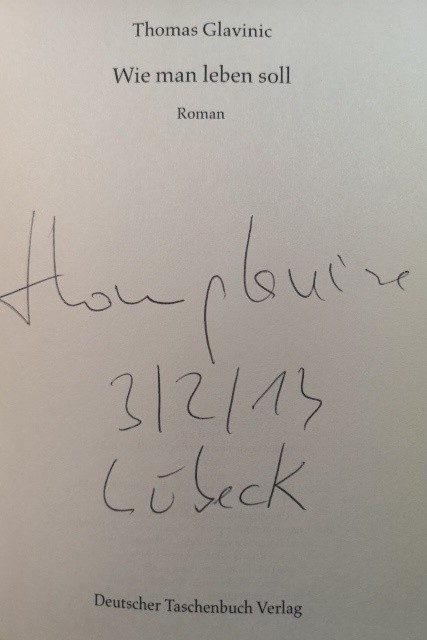 Thomas Glavinic
Wie man leben soll
Roman
Thomas Glavinic
3/2/13
Lübeck
Deutscher Taschenbuch Verlag